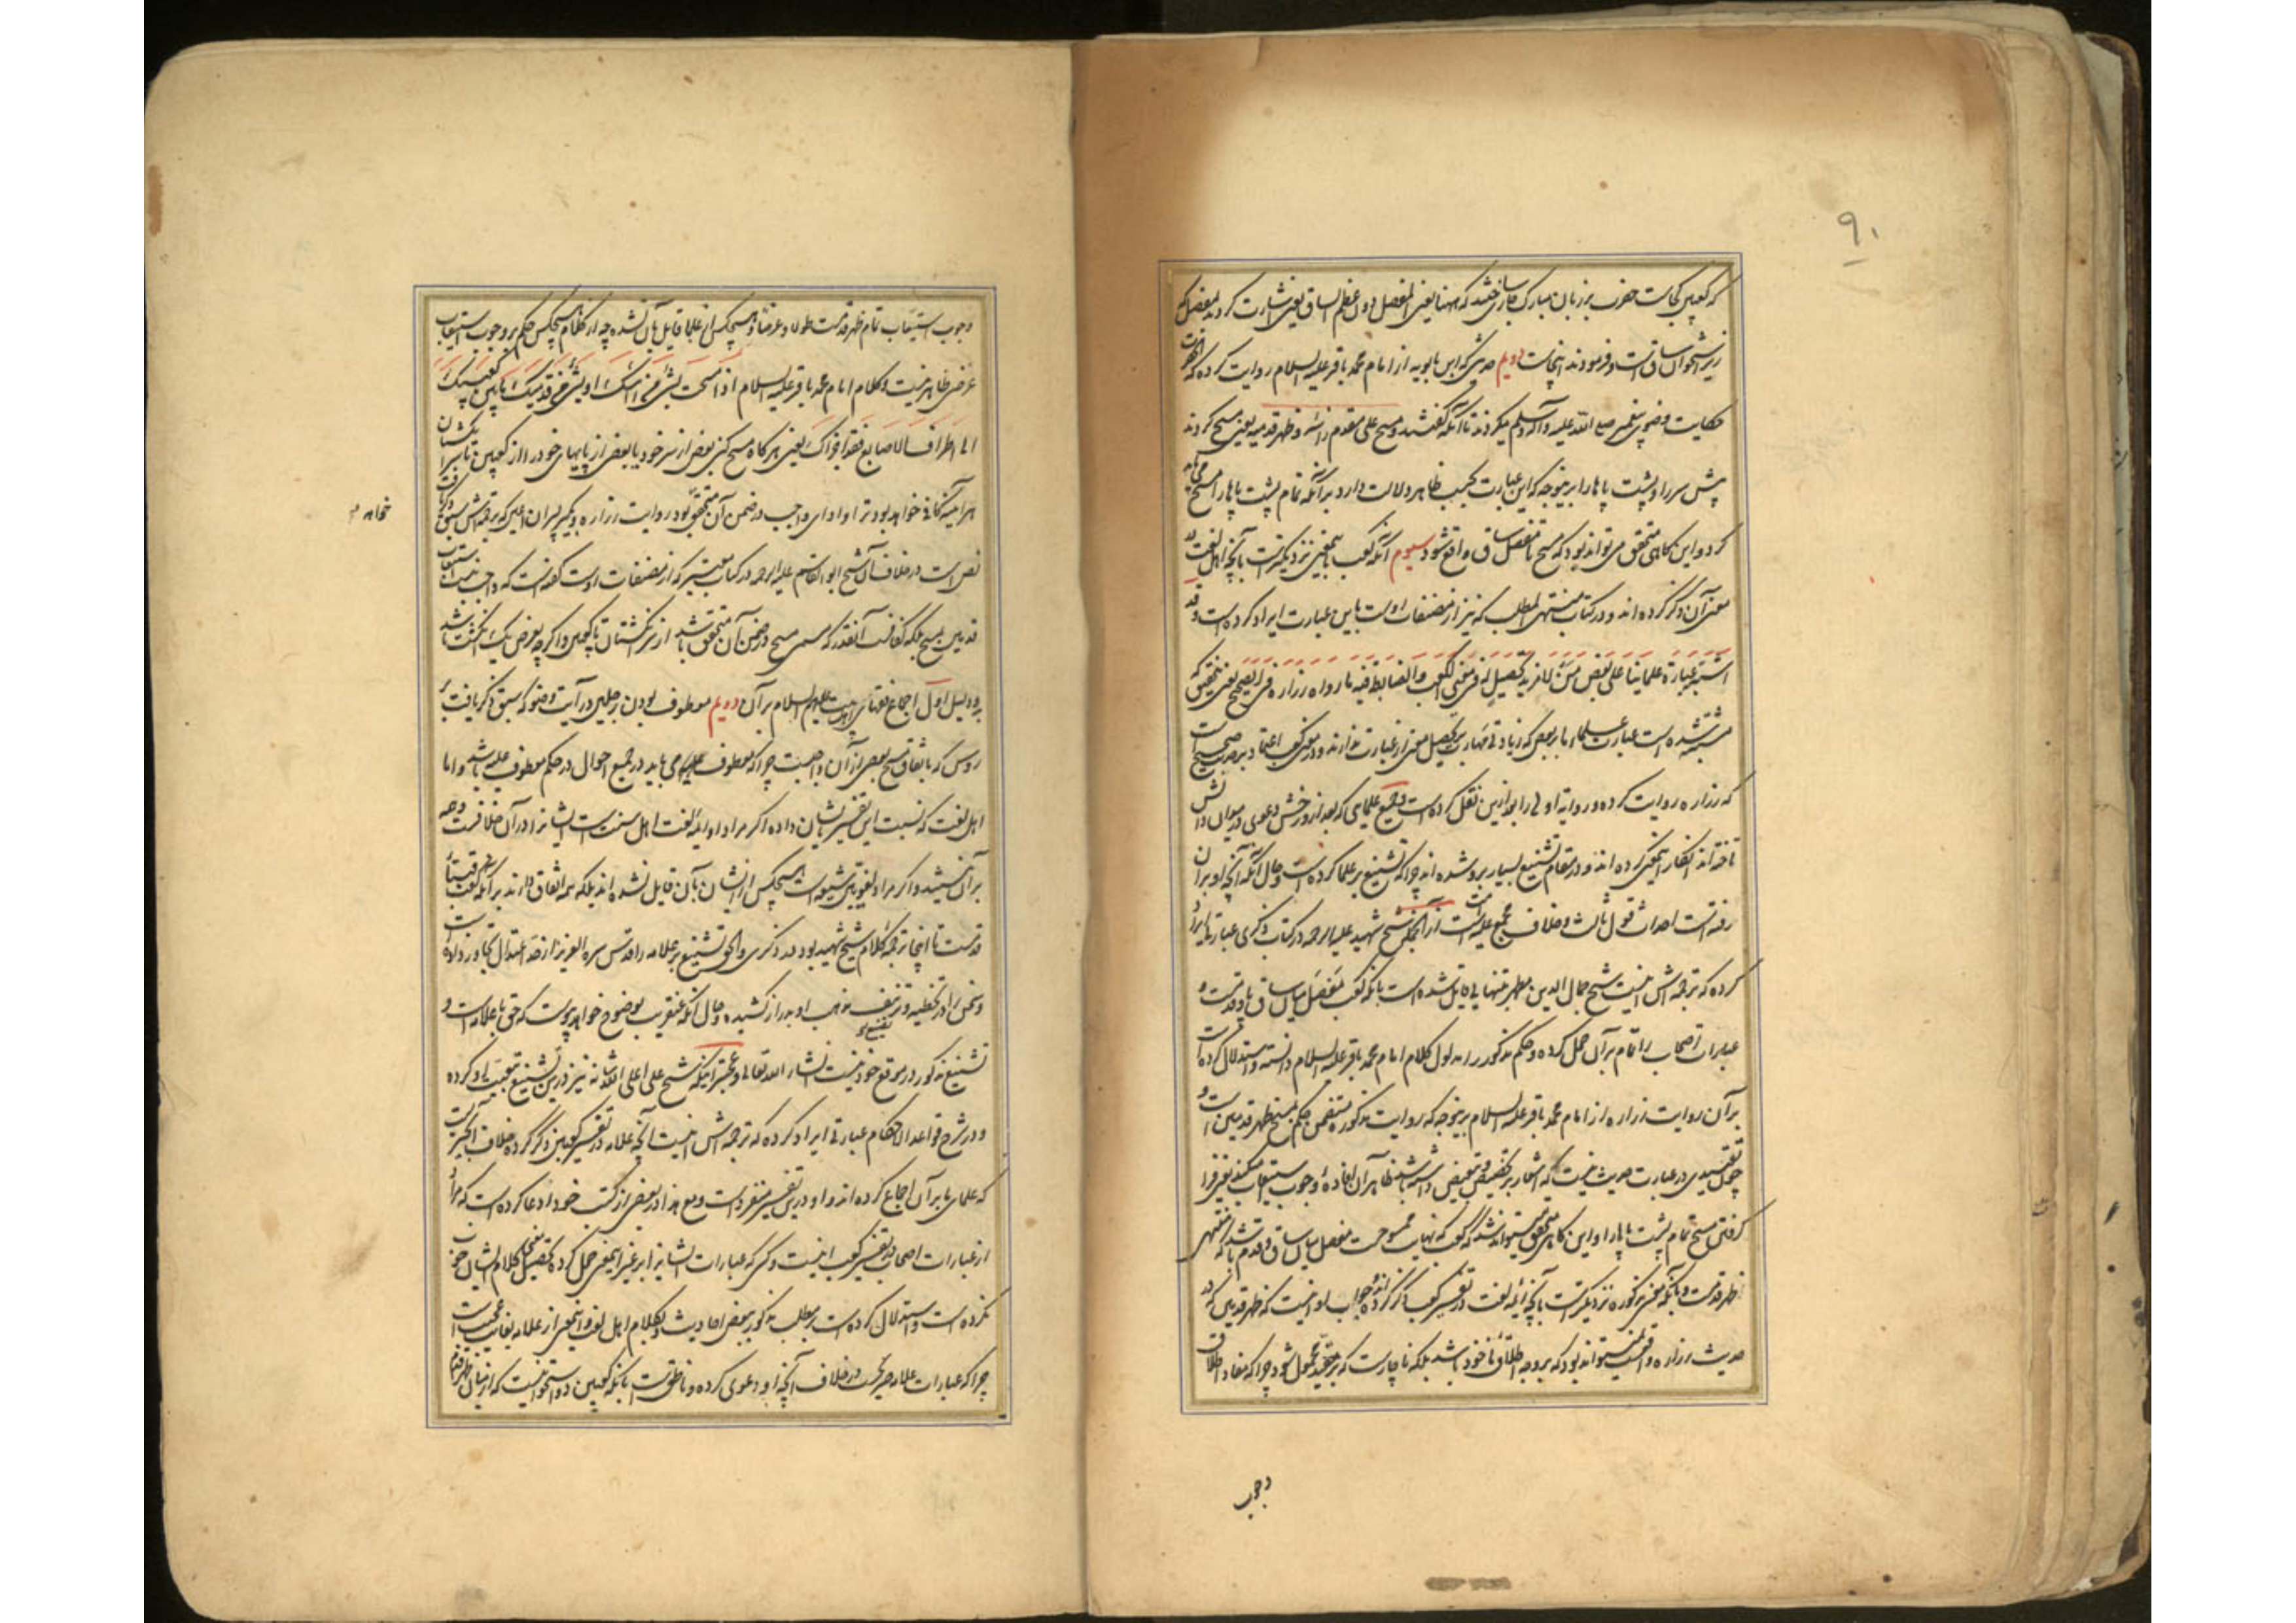 ۹۰
که کعبین کجاست حضرت بر زبان مبارک جاری ساختند که ههنا یعنی المفصل دون عظم الساق یعنی اشارت کردند بمفصل که
زیر استخوان ساق است و فرمودند اینجاست دویم حدیثی که ابن بابویه از امام محمد باقر علیه السلام روایت کرده که آنحضرت
حکایت وضوی پیغمبر صلی الله علیه وآله وسلم میکردند تا آنکه گفتند و مسح علی مقدم راسه و ظهر قدمیه یعنی مسح کردند
پیش سر را و پشت پاها را برینوجه که این عبارت بحسب ظاهر دلالت دارد بر آنکه تمام پشت پاها را مسح می باید
کرد و این گاهی متحقق می تواند بود که مسح تا مفصل ساق واقع شود سیوم آنکه کعب باینمعنی نزدیکترست بآنچه اهل لغت در
معنی آن ذکر کرده اند و در کتاب منتهی المطلب که نیز از مصنفات اوست باین عبارت ایراد کرده است وقد
اشتبه عبارة علمائنا علی بعض من لا مزید تحصیل له فی معنی الکعب والضابط فیه ما رواه زراره فی الصحیح یعنی بتحقیق که
مشتبه شده است عبارت علماء ما بر بعضی که زیادتی مهارت در تحصیل معنی از عبارت ندارند و در معنی کعب اعتماد بر حدیث صحیح است
که زراره روایت کرده و روایة اولی را بعد ازین نقل کرده است و جمیع علمایی که بعد از و رخش دعوی در میدان دانش
تاخته اند انکار اینمعنی کرده اند و در مقام تشنیع بسیار برو شده اند چرا که تشنیع بر علما کرده است و حال آنکه آنچه او بر آن
رفته است احداث قول ثالث و خلاف مجمع علیه امت است از آنجمله شیخ شهید علیه الرحمه در کتاب ذکری عبارتی ایراد
کرده که ترجمه اش اینست شیخ جمال الدین مطهر تنها قایل شده است بآنکه کعب مفصل میان ساق پا و قدمست و
عبارات اصحاب را تمام بر آن حمل کرده و حکم مذکور را مدلول کلام امام محمد باقر علیه السلام دانسته و استدلال کرده است
بر آن روایت زراره از امام محمد باقر علیه السلام برینوجه که روایت مذکوره متضمن حکم بمسح ظهر قدمین است و
چون تقییدی در عبارت حدیث نیست که اشعار بر تخصیص و تبعیض داشته باشد ظاهر آن افاده وجوب استیعاب میکند یعنی فرا
گرفتن مسح تمام پشت پاها را و این گاهی متحقق میتواند شد که کعب که نهایت ممسوحست مفصل میان ساق و قدم باشد که منتهی
ظهر قدمست و بآنکه معنی مذکوره نزدیکترست بآنچه ائمه لغت در تفسیر کعب ذکر کرده اند و جواب او اینست که ظهر قدمین که در
حدیث زراره واقعست نمیتواند بود که بر وجه اطلاق ماخوذ باشد بلکه ناچارست که بر مقید محمول شود چرا که مفاد اطلاق
وجوب
وجوب استیعاب تمام ظهر قدمست طولا و عرضا و هیچکس از علما قایل بآن نشده چه از کلام هیچکس حکم بر وجوب استیعاب
عرضی ظاهر نیست و کلام امام محمد باقر علیه السلام اذا مسحت بشیء من راسک او بشیء من قدمیک ما بین کعبیک
الی اطراف الاصابع فقد اجزاک یعنی هر گاه مسح کنی ببعض از سر خود یا ببعض از پایهای خود را از کعبین تا سر انگشتان
هر آینه کافی خواهد بود ترا و ادای واجب در ضمن آن متحقق بود و روایت زراره و بکیر پسران اعین که ترجمه اش سبق ذکر یافت
خواهد
نص است در خلاف آن شیخ ابوالقاسم علیه الرحمه در کتاب معتبر که از مصنفات اوست گفته است که واجب نیست استیعاب
قدمین بمسح بلکه کافیست آنقدر که مسمی مسح در ضمن آن متحقق باشد از سر انگشتان تا کعبین و اگر چه بعرض یک انگشت باشد
و دلیل اول اجماع فقهای اهل بیت علیهم السلام بر آن دویم معطوف بودن رجلین در آیت وضو که سبق ذکر یافت بر
روس که باتفاق مسح بعضی از آن واجبست چرا که معطوف علیه می باید در جمیع احوال در حکم معطوف علیه باشد و اما
اهل لغت که نسبت این تفسیر بایشان داده اگر مراد او ائمه لغت اهل سنت است ایشانرا در آن خلافست و همه
بر آن نیستند و اگر مراد لغویین شیعه است هیچکس از ایشان بآن قایل نشده اند بلکه همه اتفاق دارند بر آنکه کعب
قدمست تا اینجا ترجمه کلام شیخ شهید بود در ذکری و الحق تشنیع بر علامه را قدس سره العزیز از حد اعتدال تجاوز داده
و سخن را در تخطیه و تزییف مذهب او بدراز کشیده و حال آنکه عنقریب بوضوح خواهد پیوست که حق با علامه است و
تشنیع مذکور در موقع خود نیست انشاء الله تعالی و عجبتر اینکه شیخ علی اعلی الله شانه نیز درین تشنیع تبعیت او کرده
و در شرح قواعد الاحکام عبارتی ایراد کرده که ترجمه اش اینست آنچه علامه در تفسیر کعبین ذکر کرده خلاف آنچیزیست
که علمای ما بر آن اجماع کرده اند و او درین تفسیر منفرد است و مع هذا در بعضی از کتب خود ادعا کرده است که مراد
از عبارات اصحاب در تفسیر کعب اینست و کسی که عبارات ایشانرا بر غیر اینمعنی حمل کرده تحصیل کلام ایشان خوب
نکرده است و استدلال کرده است بر مطلب مذکور ببعض احادیث و بکلام اهل لغت و اینمعنی از علامه بغایت عجیب است
چرا که عبارات علماء صریحست در خلاف آنچه او دعوی کرده و ناطق است بآنکه کعبین دو استخوانیست که از میان ظهر قدم